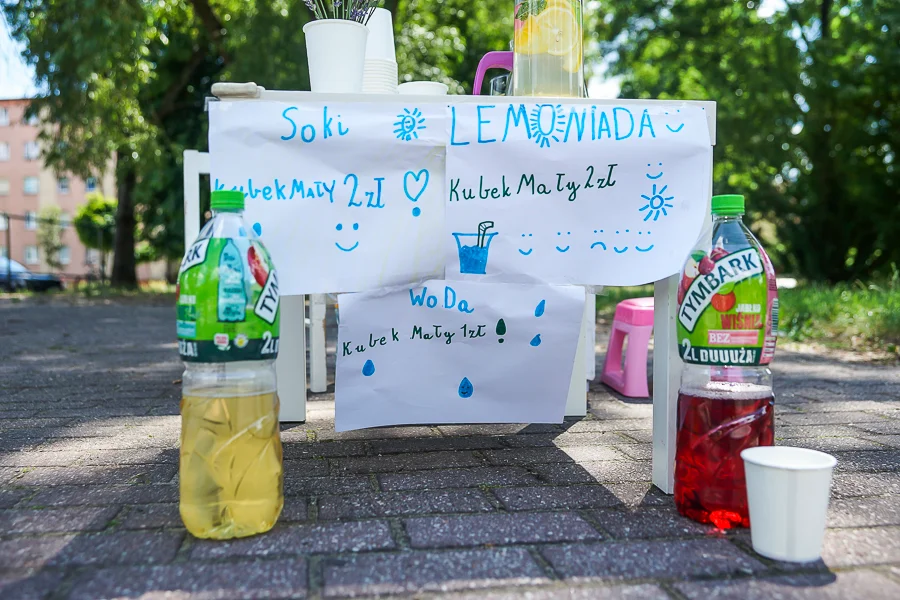 Soki
LEMONIADA
Kubek MAŁY 2zł
Kubek Mały 2zł
WoDa
Kubek Mały 1zł
TYMBARK
JABŁKO
WIŚNIA
BEZ
2L DUUUŻA!